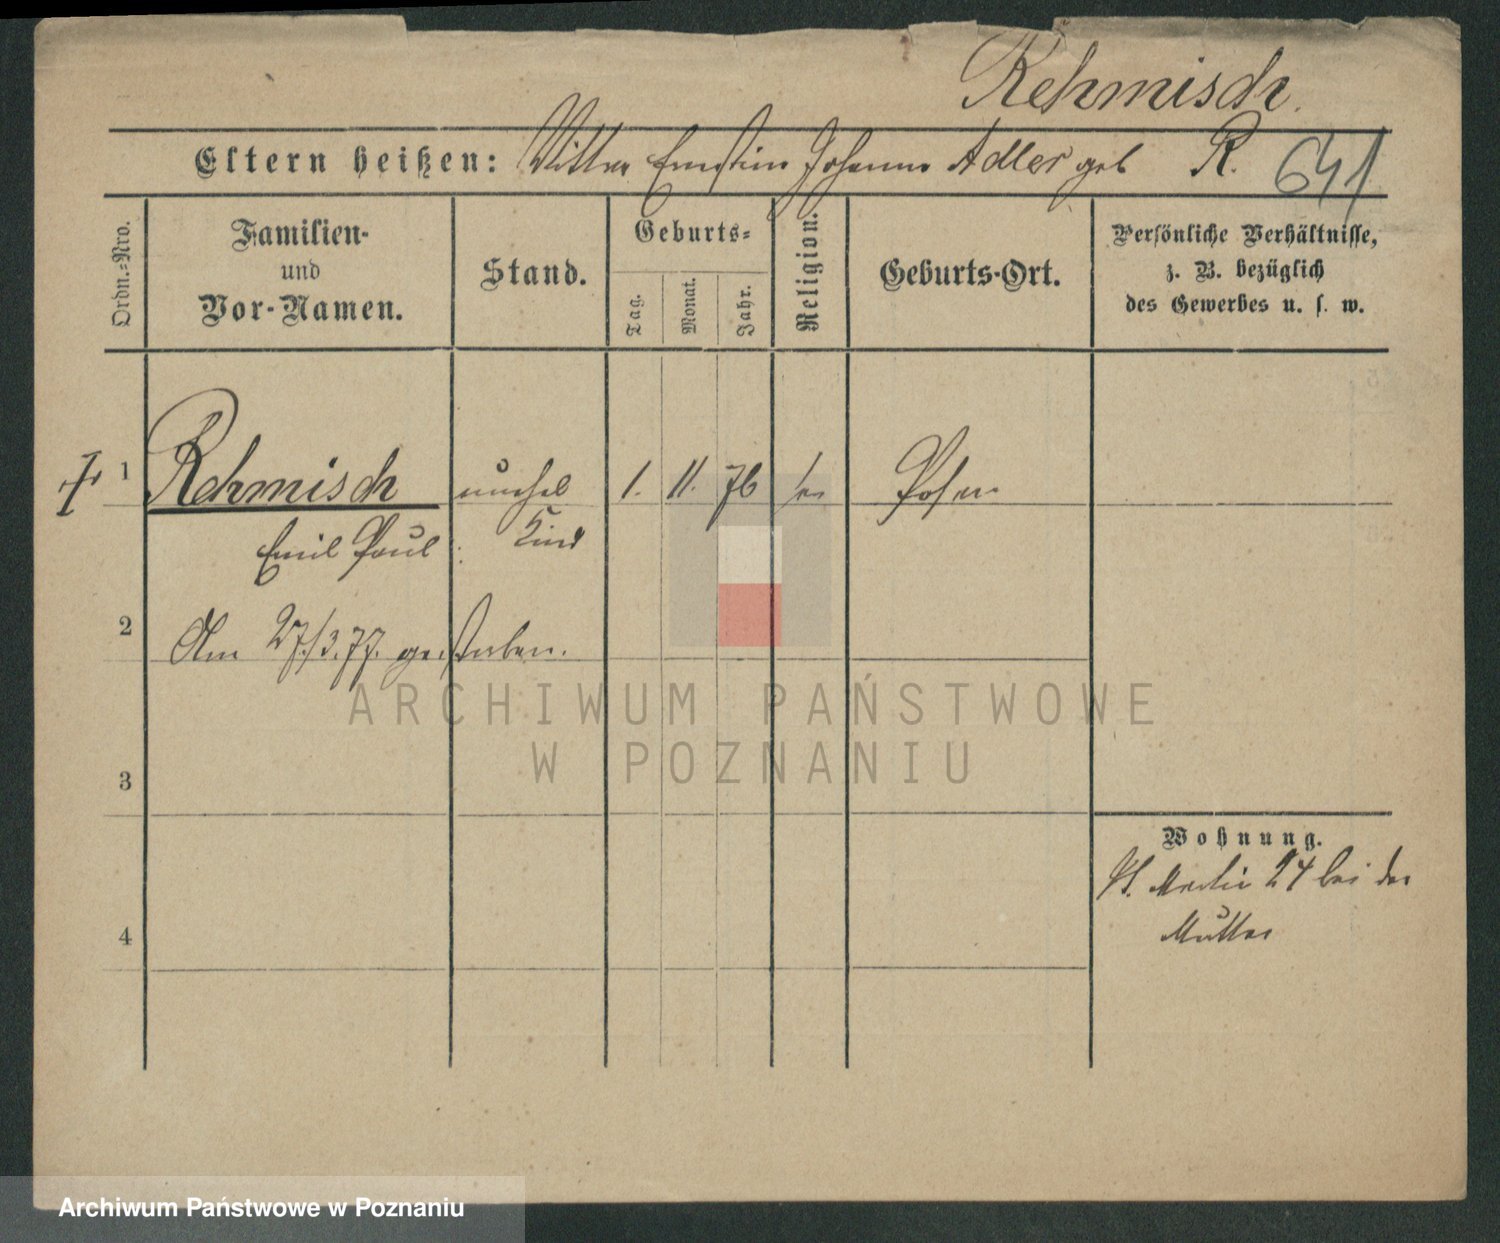 Rehmisch.
Eltern heißen: Mutter Ernstine Johanna Adler geb R. 641
Ordn.-Nro.
Familien-
und
Vor-Namen.
Stand.
Geburts-
Tag.
Monat.
Jahr.
Religion.
Geburts-Ort.
Persönliche Verhältnisse,
z. B. bezüglich
des Gewerbes u. s. w.
1 Rehmisch unehel 1. 11. 76 ev Posen
Emil Paul Kind
2 Am 27./3.77. gestorben.
3
Wohnung.
St. Martin 24 bei der
Mutter
4
ARCHIWUM PAŃSTWOWE
W POZNANIU
Archiwum Państwowe w Poznaniu